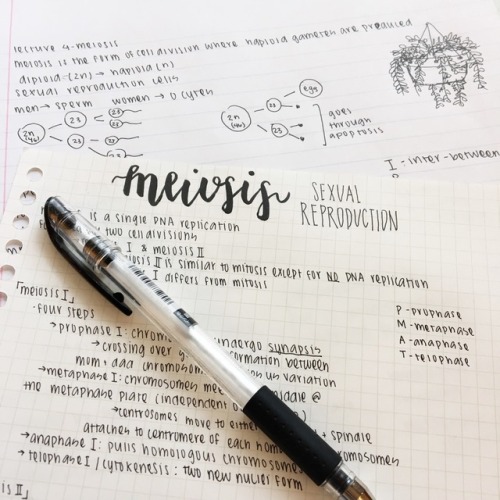 lecture 4-meiosis
meiosis is the form of cell division where haploid gametes are produced
diploid-(2n) → haploid(n)
sexual reproduction cells
men→ sperm women→ ocytes
2n (46) 23 23
2n (46) 23 egg
goes through apoptosis
I - inter-between
meiosis SEXUAL REPRODUCTION
is a single DNA replication
two cell divisions
I & meiosis II
II is similar to mitosis except for NO DNA replication
I differs from mitosis
「meiosis I」
·four steps
→prophase I: undergo synapsis
→crossing over between
mom + dad variation
→metaphase I: chromosomes @
the metaphase plate (independent
→centrosomes move to + spindle
attaches to centromere of each
→anaphase I: pulls homologous
→telophase I / cytokenesis: two new nuclei form
P-prophase
M-metaphase
A-anaphase
T-telophase